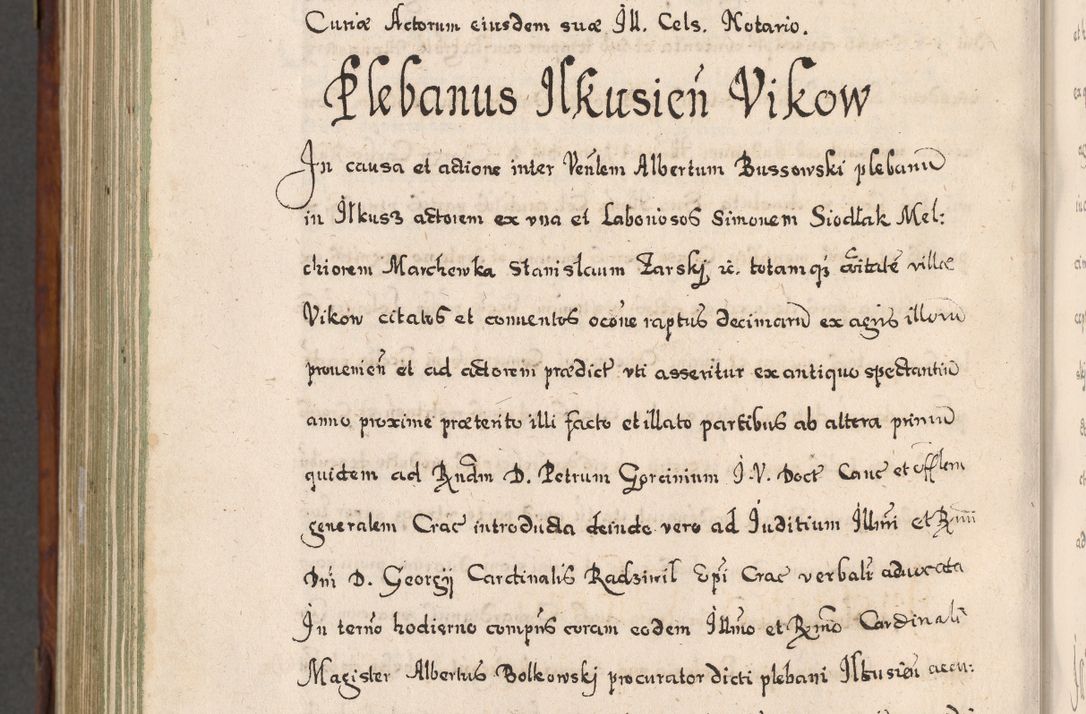 Curiæ Actorum eiusdem suæ Ill. Cels. Notario.
Plebanus Ilkusień Vikow
In causa et actione inter Veńlem Albertum Bussowski plebanū
in Ilkusz actorem ex vna et Laboriosos Simonem Siodłak Mel:
chiorem Marchewka Stanisłaum Zarskij rc. totamq3 cōitatē villæ
Vikow citatos et conuentos ocōne raptus decimarū ex agris illorū
prouenień et ad actorem prædict vti asseritur ex antiquo spectantiū
anno proxime præterito illi facto et illato partibus ab altera primū
quidem ad Rndm D. Petrum Gorcinium J.V. Doct Canc et Offlem
generalem Crac introducta deinde vero ad Iuditium Illm̄i et Rm̄i
Dn̄i D. Georgij Cardinalis Radziwil Ep̄i Crac verbalr aduocata
In termo hodierno compn̄s coram eodem Illm̄o et Rm̄o Cardinali
Magister Albertus Bolkowskj procurator dicti plebani Ilkusień accu: